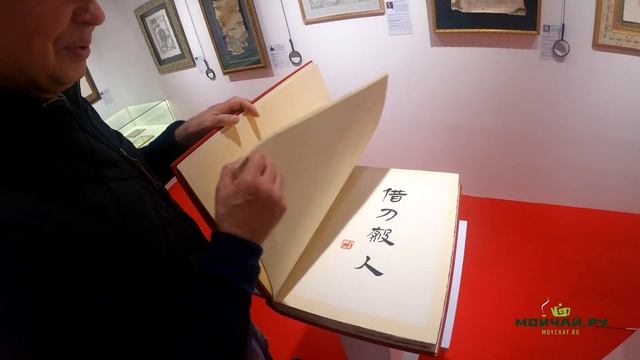 借刀殺人
МОЙЧАЙ.РУ
MOYCHAY.RU